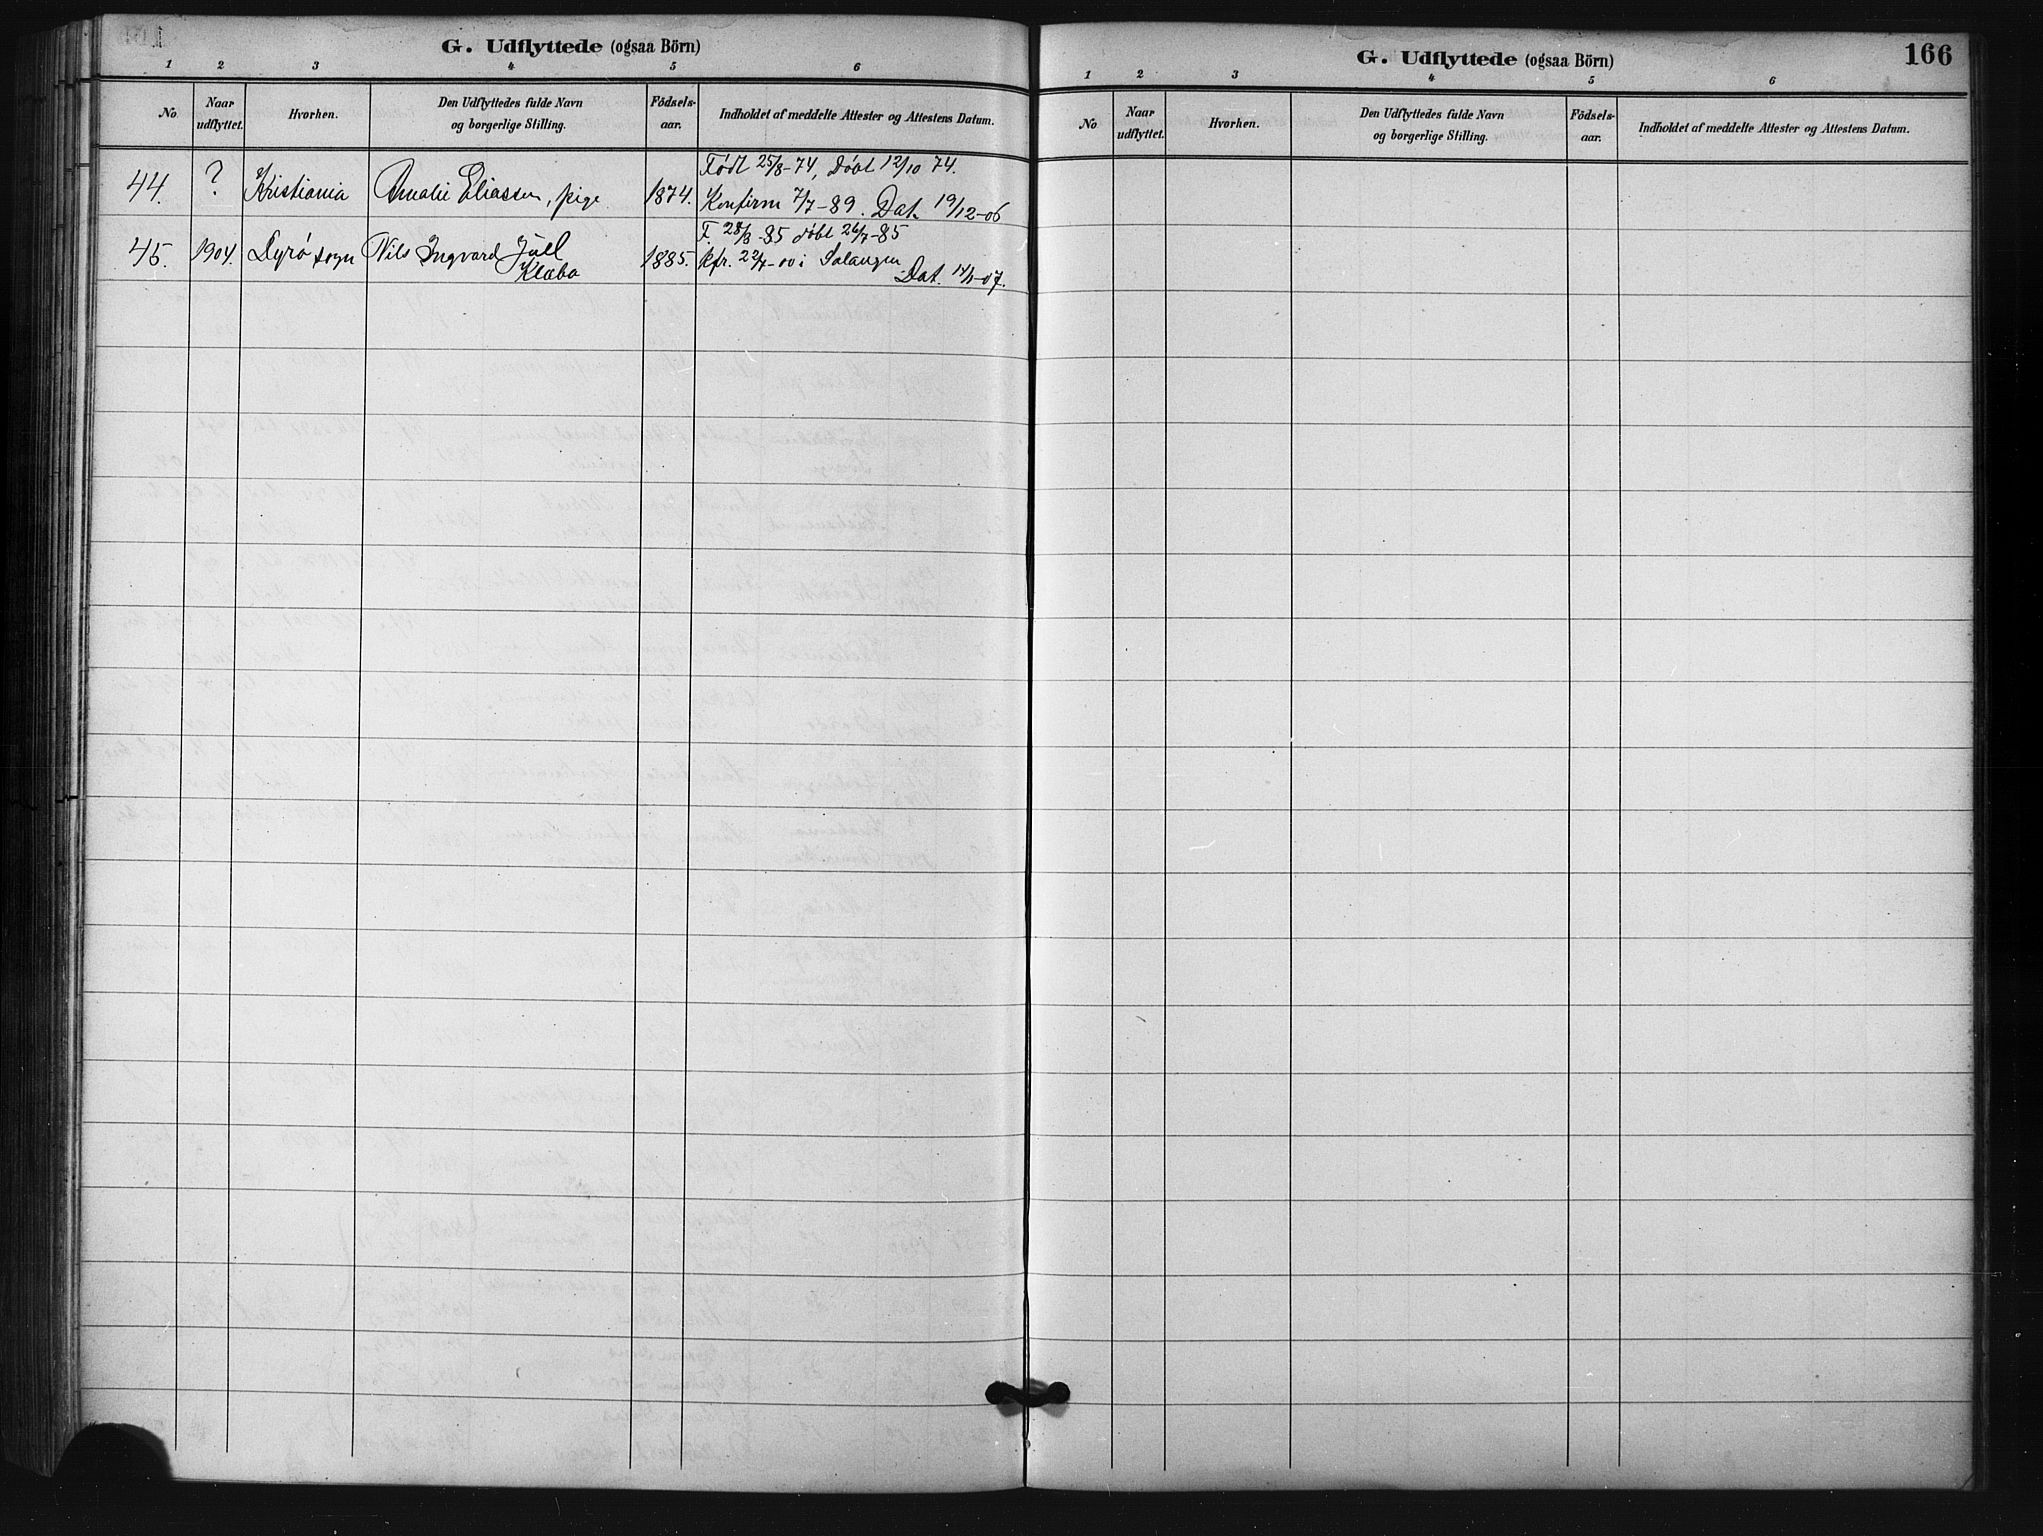 G. Udflyttede (ogsaa Börn)
1 2 3 4 5 6
No. Naar udflyttet. Hvorhen. Den Udflyttedes fulde Navn og borgerlige Stilling. Födsels-aar. Indholdet af meddelte Attester og Attestens Datum.
44. ? Kristiania Amalie Eliassen, pige 1874. Født 25/8-74, Døbt 12/10 74.
Konfirm 7/7-89. Dat. 19/12-06
45. 1904. Dyrø sogn Nils Ingvard Juell 1885. F. 28/3-85 døbt 26/7-85
Klæbo kfr. 22/7-00 i Salangen
Dat. 14/1-07.
G. Udflyttede (ogsaa Börn) 166
1 2 3 4 5 6
No Naar udflyttet. Hvorhen. Den Udflyttedes fulde Navn og borgerlige Stilling. Födsels-aar. Indholdet af meddelte Attester og Attestens Datum.